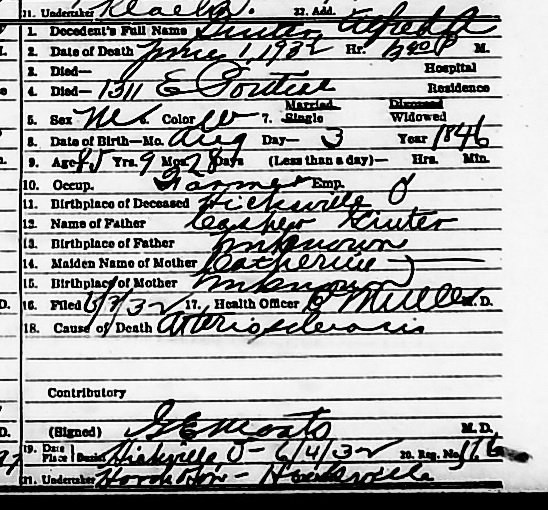 21. Undertaker Klaehn. 22. Add.
1. Decedent's Full Name Ginter Alfred A
2. Date of Death June 1, 1932 Hr. P M.
3. Died— Hospital
4. Died— 1311 E Pontiac Residence
5. Sex M 6. Color W 7. Married Single Divorced Widowed
8. Date of Birth—Mo. Aug Day— 3 Year 1846
9. Age 85 Yrs. 9 Mos. 28 Days (Less than a day)— Hrs. Min.
10. Occup. Farmer Emp. O
11. Birthplace of Deceased Hicksville O
12. Name of Father Casper Ginter
13. Birthplace of Father Unknown
14. Maiden Name of Mother Catherine —
15. Birthplace of Mother Unknown
16. Filed 6/3/32 17. Health Officer M.D.
18. Cause of Death Arteriosclerosis
Contributory
(Signed) G E Moats M. D.
19. Date Place Burial Hicksville O— 6/4/32 20. Reg. No. 176
21. Undertaker — Hicksville